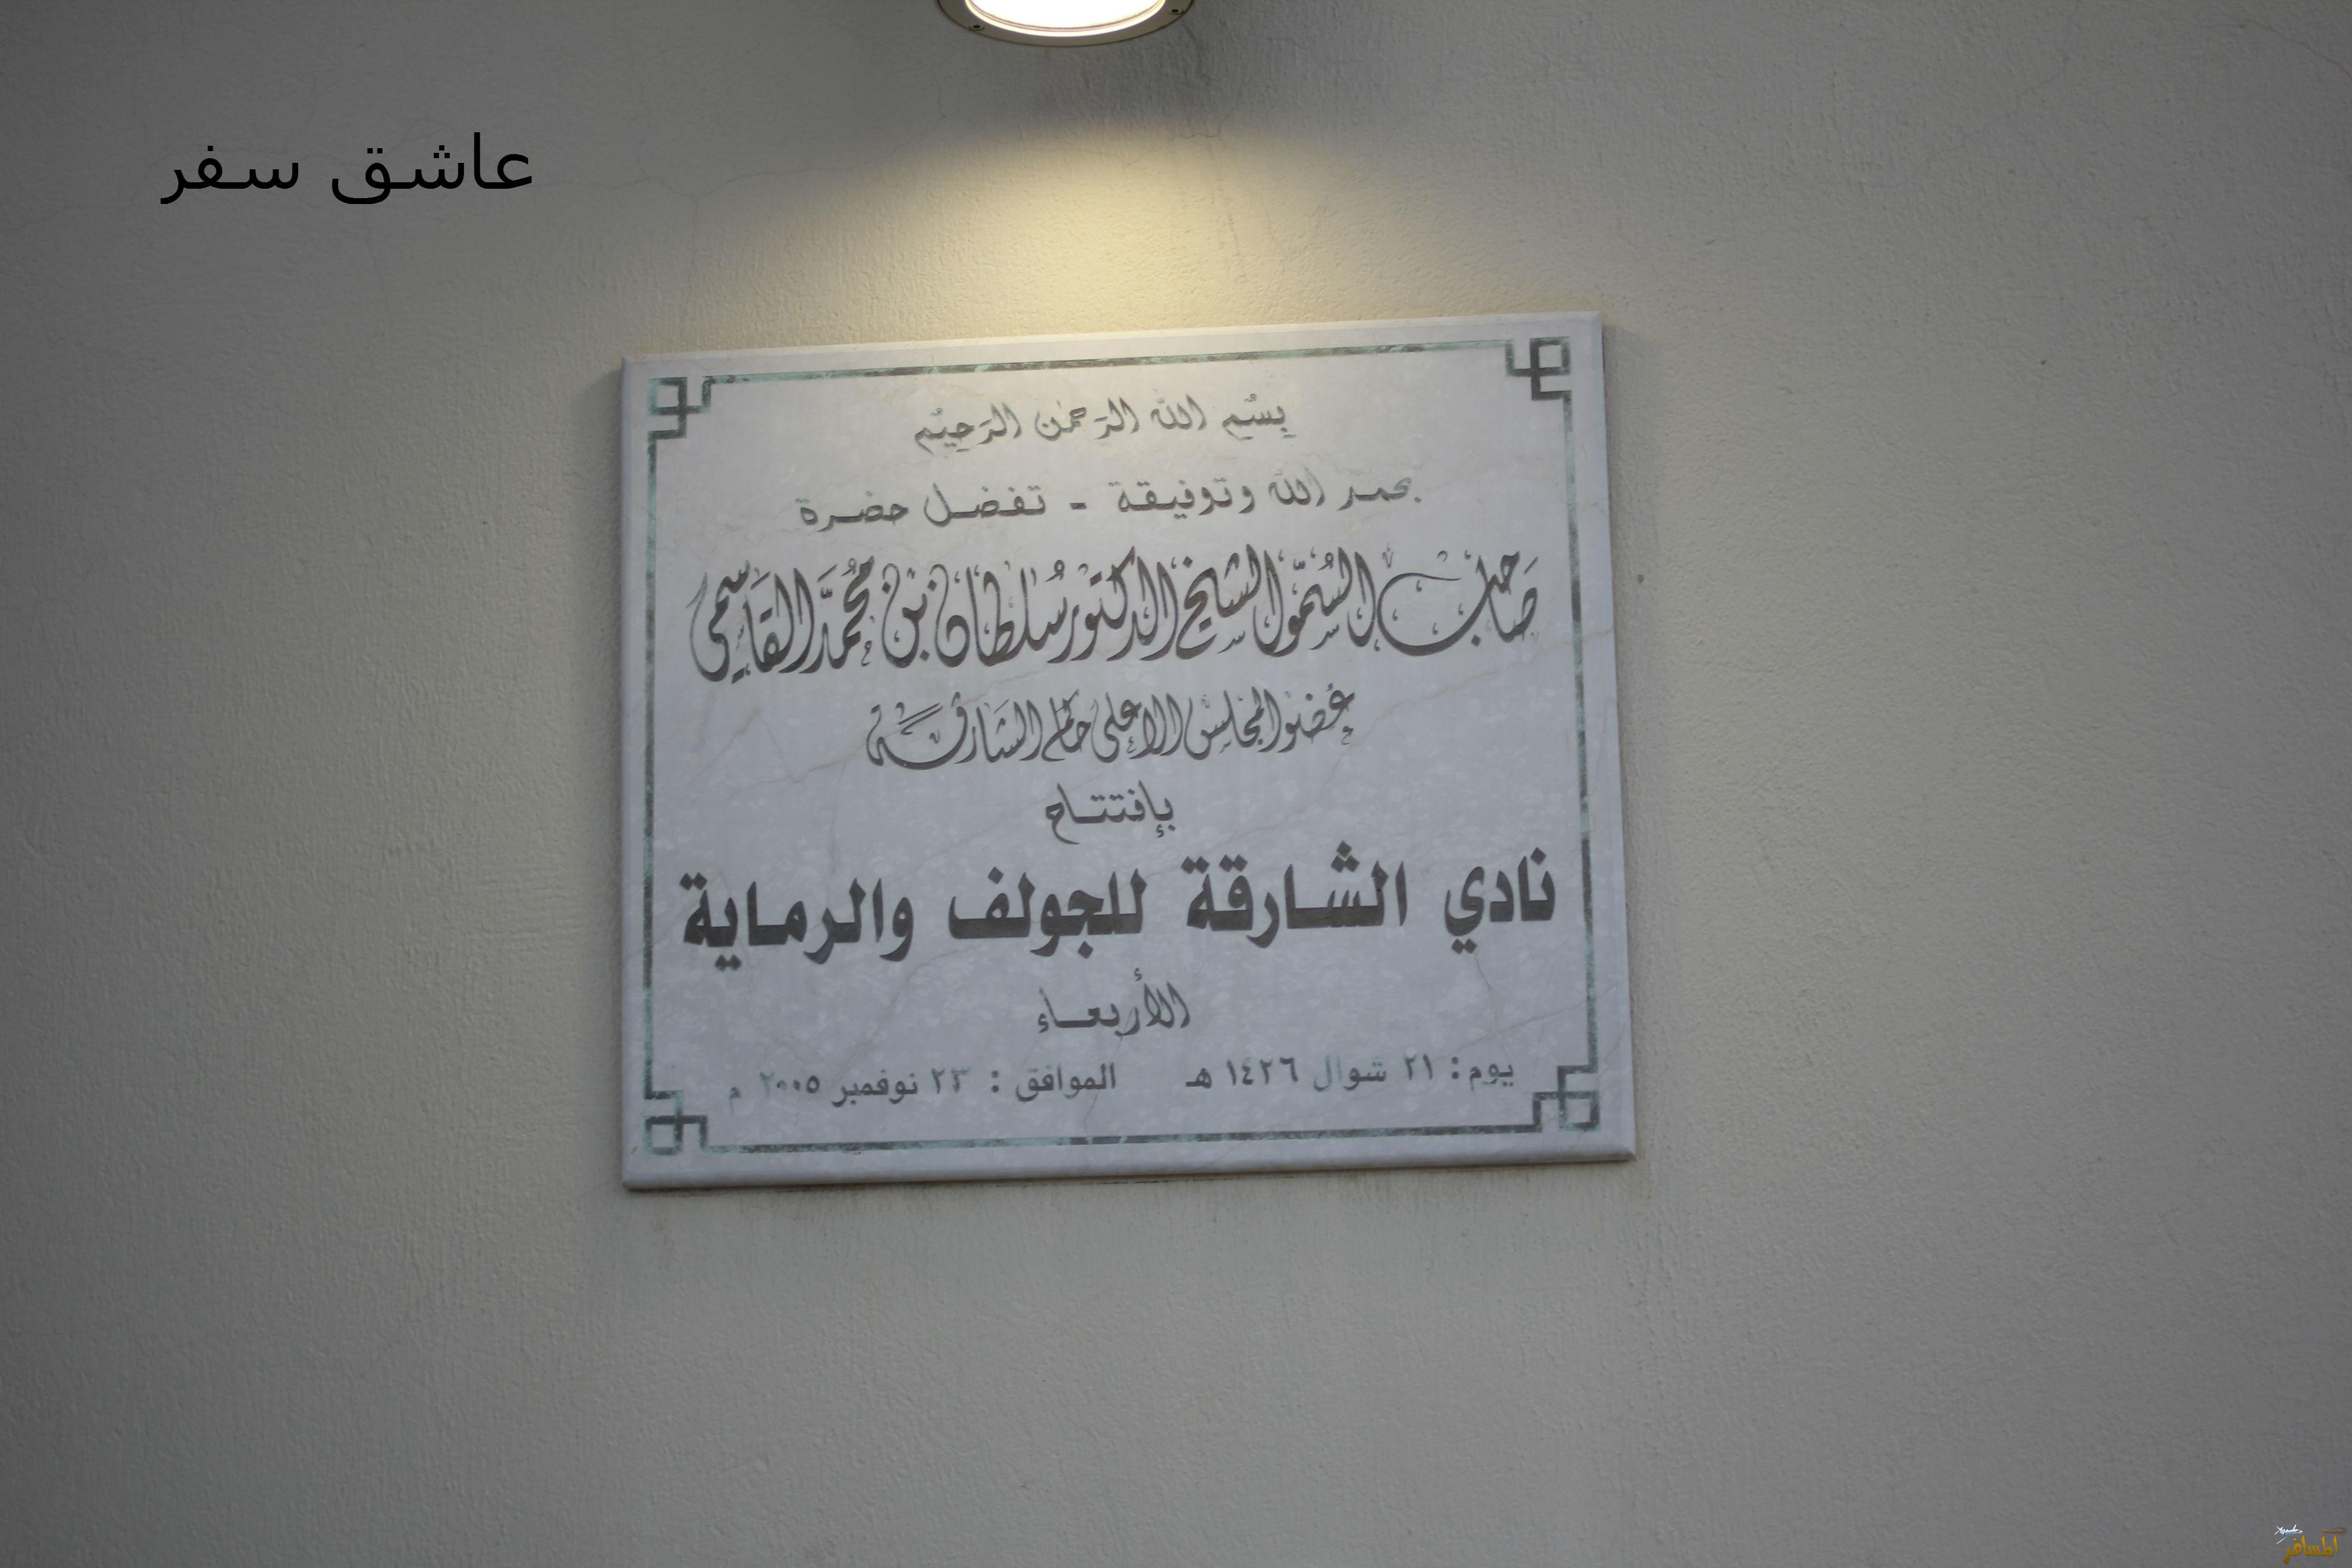 عاشق سفر
بسم الله الرحمن الرحيم
بحمد الله وتوفيقة - تفضل حضرة
صاحب السمو الشيخ الدكتور سلطان بن محمد القاسمي
عضو المجلس الاعلى حاكم الشارقة
بإفتتاح
نادي الشارقة للجولف والرماية
الأربعاء
يوم: ٢١ شوال ١٤٢٦ هـ الموافق : ٢٣ نوفمبر ٢٠٠٥ م
المسافر